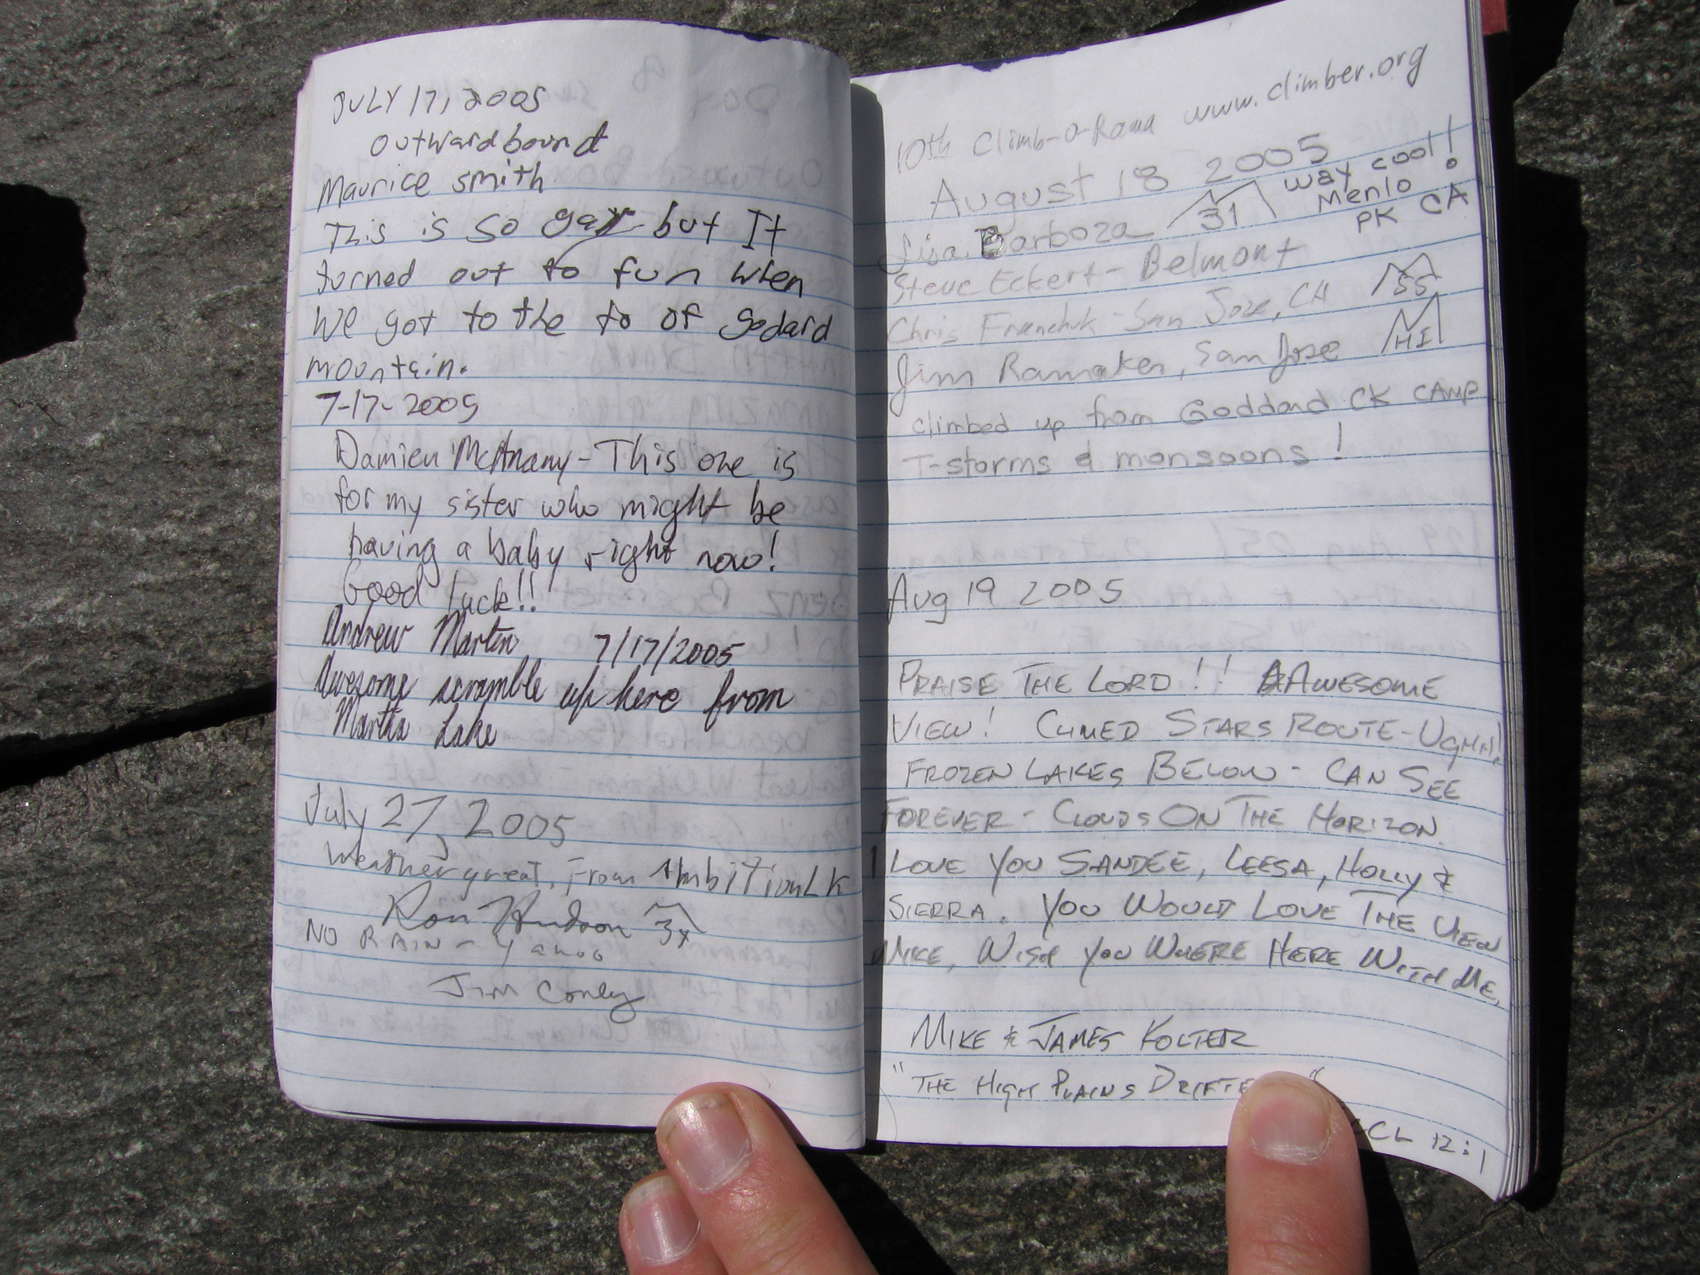 JULY 17, 2005
Outward bound
Maurice smith
This is so gay but It
turned out to fun when
We got to the to of Godard
mountain.
7-17-2005
Damien McAnany - This one is
for my sister who might be
having a baby right now!
Good luck!!
Andrew Martin 7/17/2005
Awesome scramble up here from
Martha Lake
July 27, 2005
Weather great, From Ambition LK
Ron Hudson 3x
NO RAIN - Yahoo
Jim Conley
10th Climb-O-Rama www.climber.org
August 18 2005
Lisa Barboza 31 way cool!
Menlo
PK CA
Steve Eckert - Belmont
Chris Franchuk - San Jose, CA 55
Jim Ramaker, San Jose HI
climbed up from Goddard CK CAMP
T-storms & monsoons!
Aug 19 2005
PRAISE THE LORD!! AWESOME
VIEW! CLIMED STARS ROUTE - UGHH!
FROZEN LAKES BELOW - CAN SEE
FOREVER - CLOUDS ON THE HORIZON.
I LOVE YOU SANDEE, LEESA, HOLLY &
SIERRA. YOU WOULD LOVE THE VIEW
MIKE, WISH YOU WHERE HERE WITH ME,
MIKE & JAMES KOLTER
"THE HIGH PLAINS DRIFTE "
CL 12:1